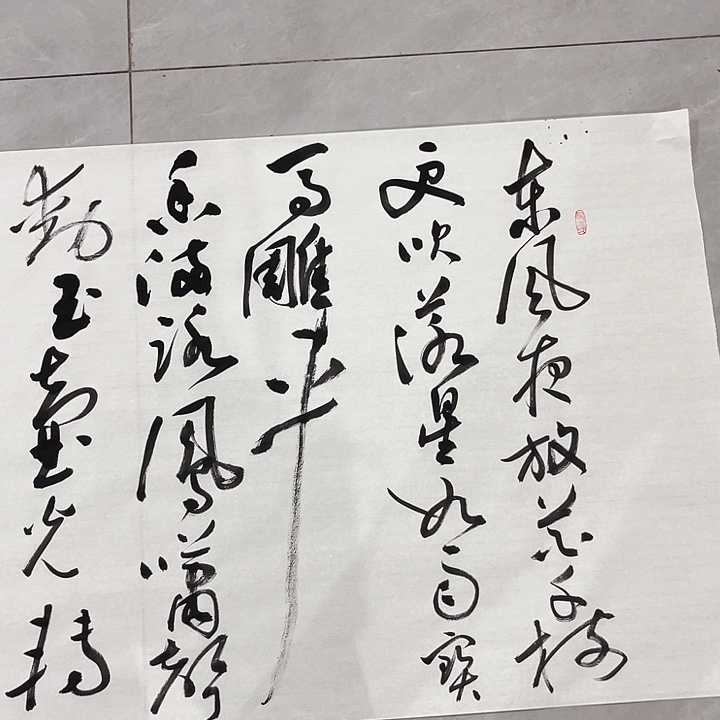 東風夜放花千樹
更吹落星如雨寶
馬雕車
香滿路鳳嘯聲
動玉壺光轉